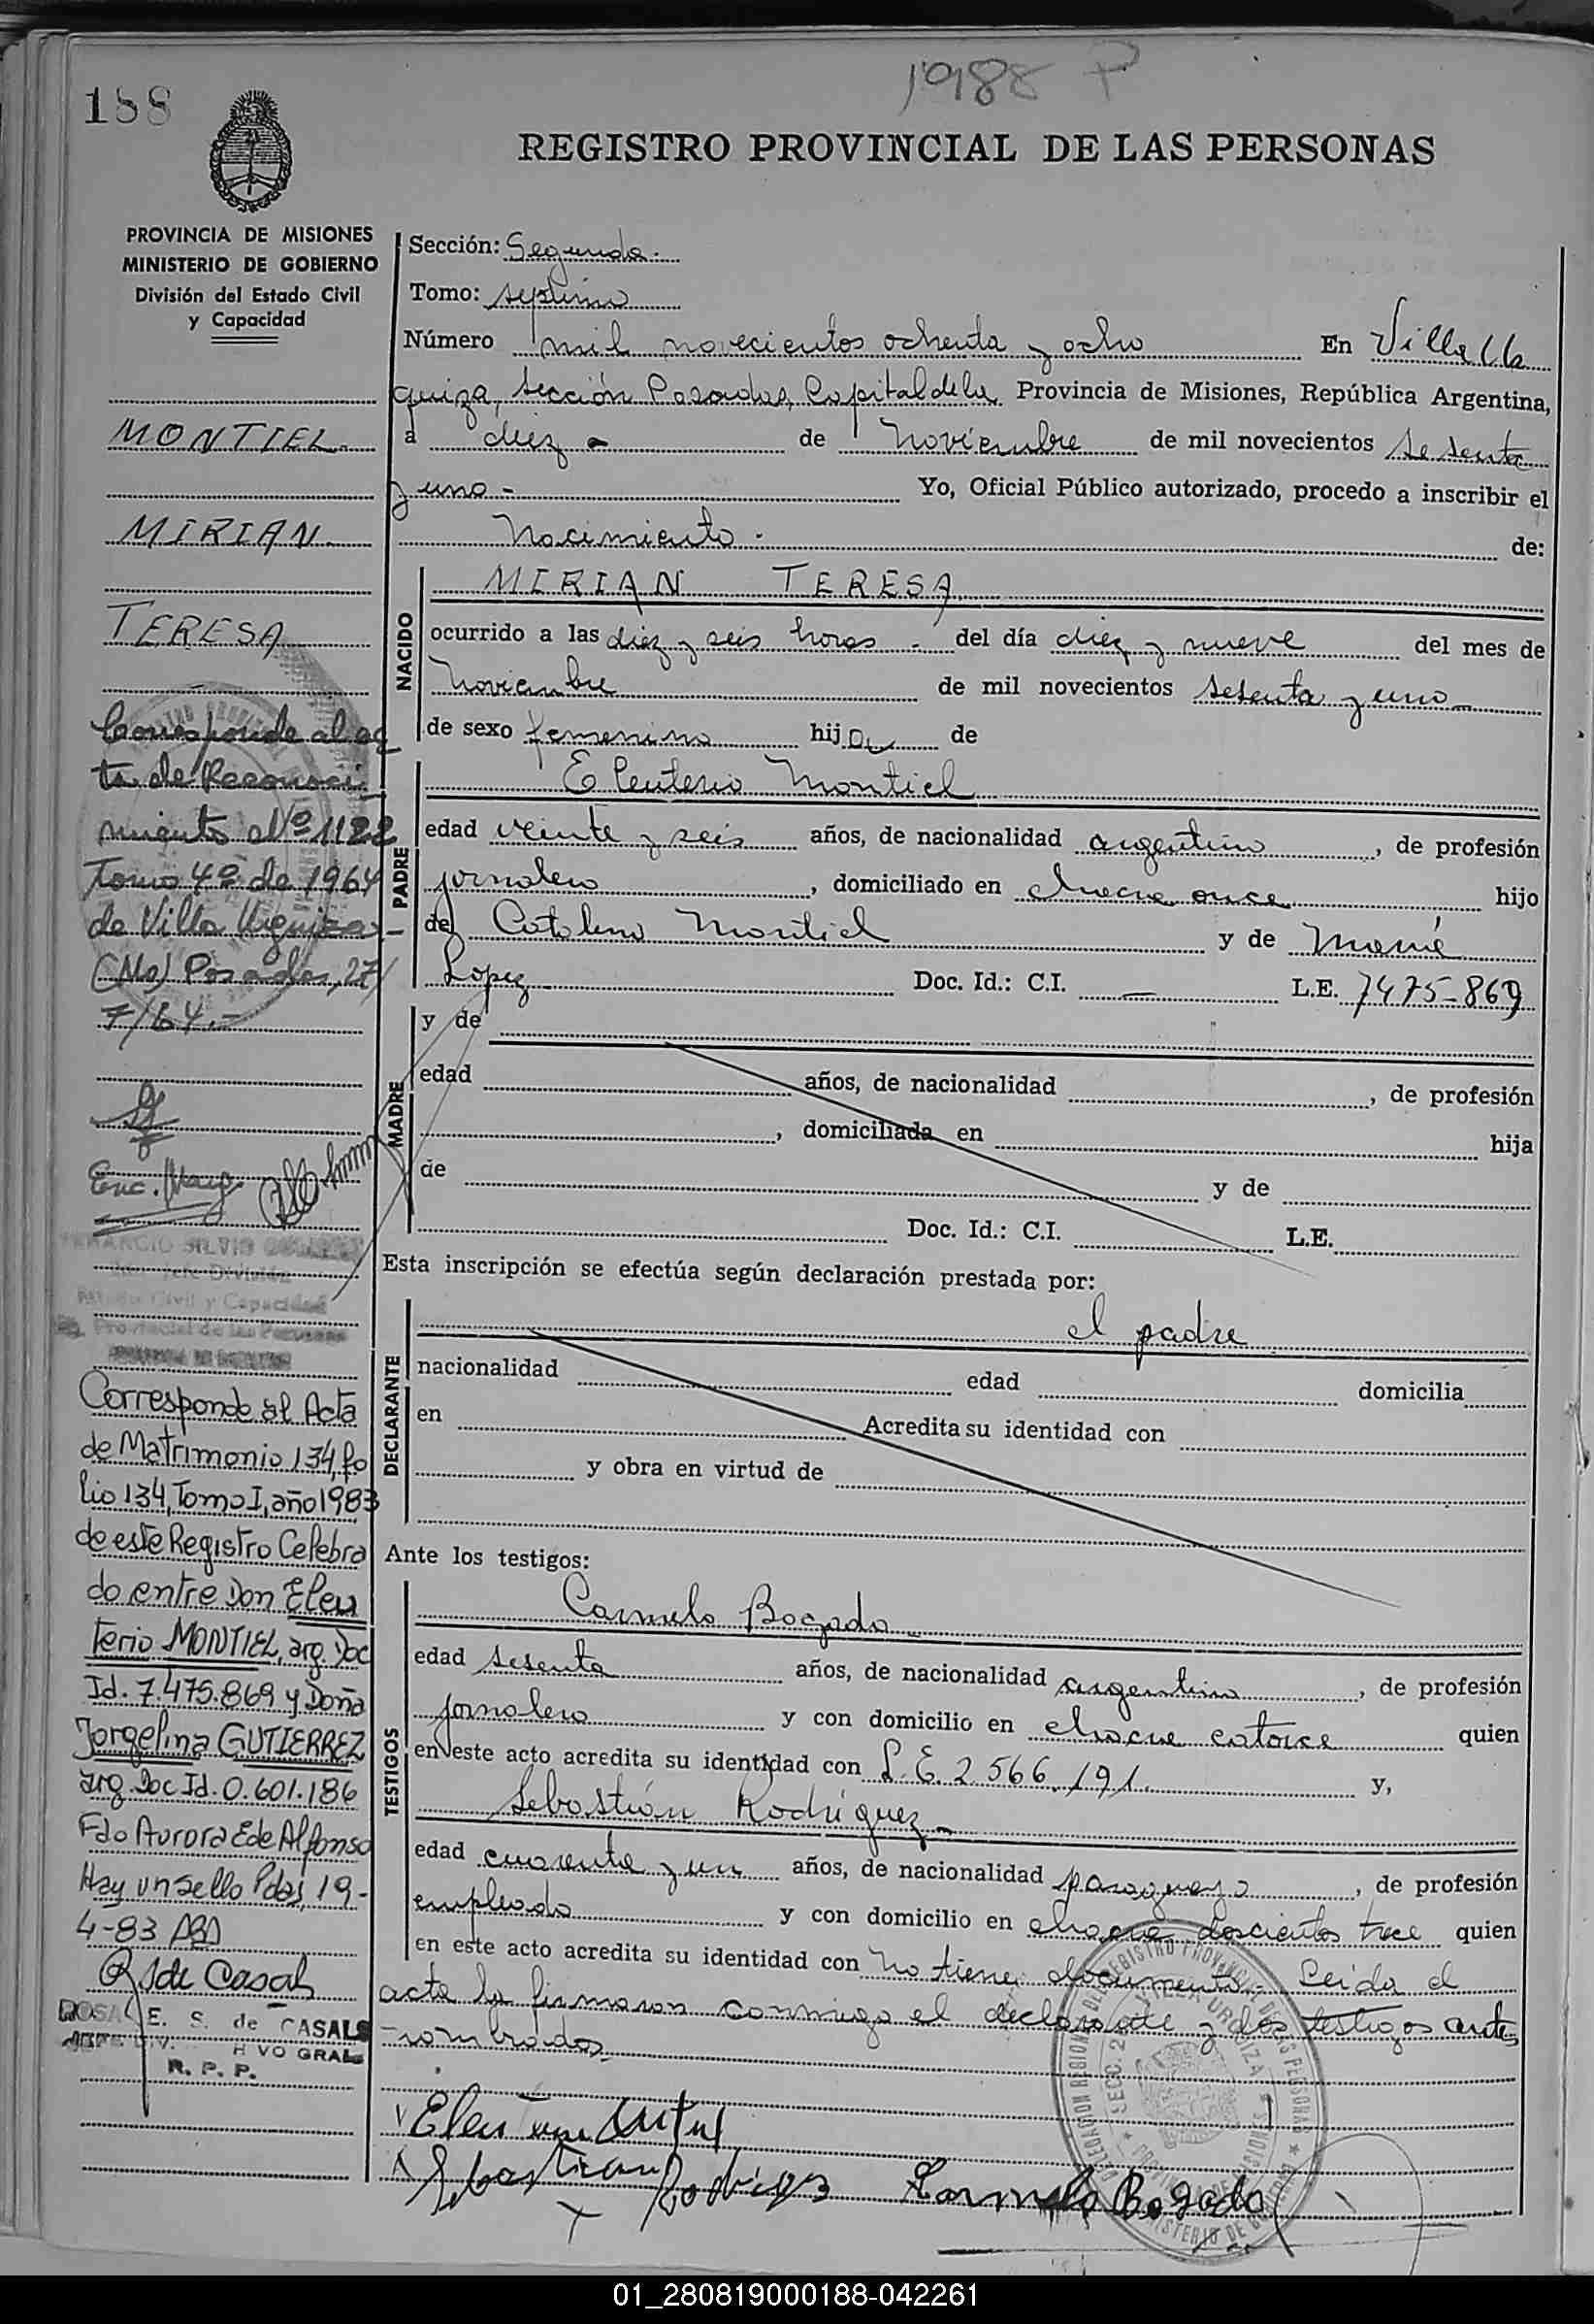 188
1988 P
REGISTRO PROVINCIAL DE LAS PERSONAS
PROVINCIA DE MISIONES
MINISTERIO DE GOBIERNO
División del Estado Civil
y Capacidad
MONTIEL
MIRIAN
TERESA
Corresponde al ac
ta de Reconoci
miento Nº 1122
Tomo 4º de 1964
de Villa Urquiza
(Ms) Posadas, 27/
7/64.-
Enc.
SILVIO
División
Civil y Capacidad
Provincial de las Personas
Corresponde al Acta
de Matrimonio 134, fo
lio 134, Tomo I, año 1983
de este Registro Celebra
do entre Don Eleu
terio MONTIEL, arg. Doc
Id. 7.475.869 y Doña
Jorgelina GUTIERREZ
arg. Doc Id. 0.601.186
Fdo Aurora E de Alfonso
Hay un sello Pdas, 19-
4-83
R S de Casals
ROSA E. S. de CASALS
DIV. GRAL
R. P. P.
Sección: Segunda.
Tomo: septimo
Número mil novecientos ochenta y ocho En Villa U
quiza, sección Posadas, Capital de la Provincia de Misiones, República Argentina,
a diez - de Noviembre de mil novecientos sesenta
y uno - Yo, Oficial Público autorizado, procedo a inscribir el
Nacimiento. de:
NACIDO
MIRIAN TERESA
ocurrido a las diez y seis horas - del día diez y nueve del mes de
Noviembre de mil novecientos sesenta y uno
de sexo femenino hija de
PADRE
Eleuterio Montiel
edad veinte y seis años, de nacionalidad argentino, de profesión
jornalero, domiciliado en chacra once hijo
de Catalino Montiel y de
Lopez Doc. Id.: C.I. — L.E. 7475-869
MADRE
y de
edad años, de nacionalidad , de profesión
, domiciliada en hija
de y de
Doc. Id.: C.I. L.E.
Esta inscripción se efectúa según declaración prestada por:
DECLARANTE
el padre
nacionalidad edad domicilia
en Acredita su identidad con
y obra en virtud de
Ante los testigos:
TESTIGOS
Carmelo Bogado
edad sesenta años, de nacionalidad argentino, de profesión
jornalero y con domicilio en chacra catorce quien
en este acto acredita su identidad con L.E 2.566.191. y,
Sebastián Rodriguez
edad cuarenta y un años, de nacionalidad paraguayo, de profesión
empleado y con domicilio en chacra doscientos trece quien
en este acto acredita su identidad con no tiene documento. Leida el
acta la firmaron conmigo el declarante y dos testigos antes
nombrados
Sebastian Rodrigez Carmelo Bogado
01_280819000188-042261